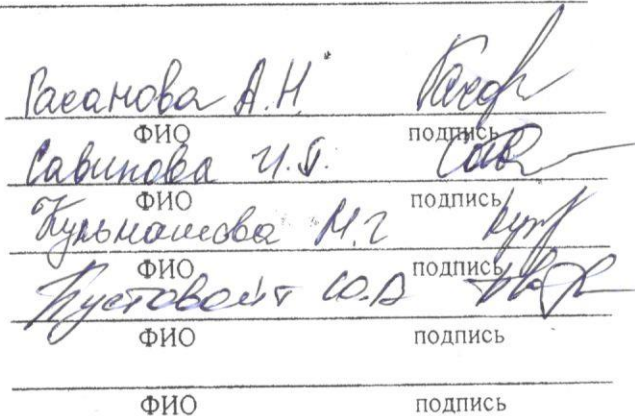 Гасанова А.Н.
ФИО подпись
Савинова И.П.
ФИО подпись
Кульнашова М.Г
ФИО подпись
Пустовойт Ю.А
ФИО подпись
ФИО подпись